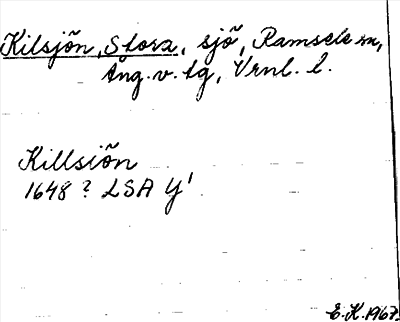 Kilsjön, Stora, sjö, Ramsele sn,
Ång. v. tg, Vrnl. l.
Killsiön
1648 ? LSA Y'
E.K. 1967.